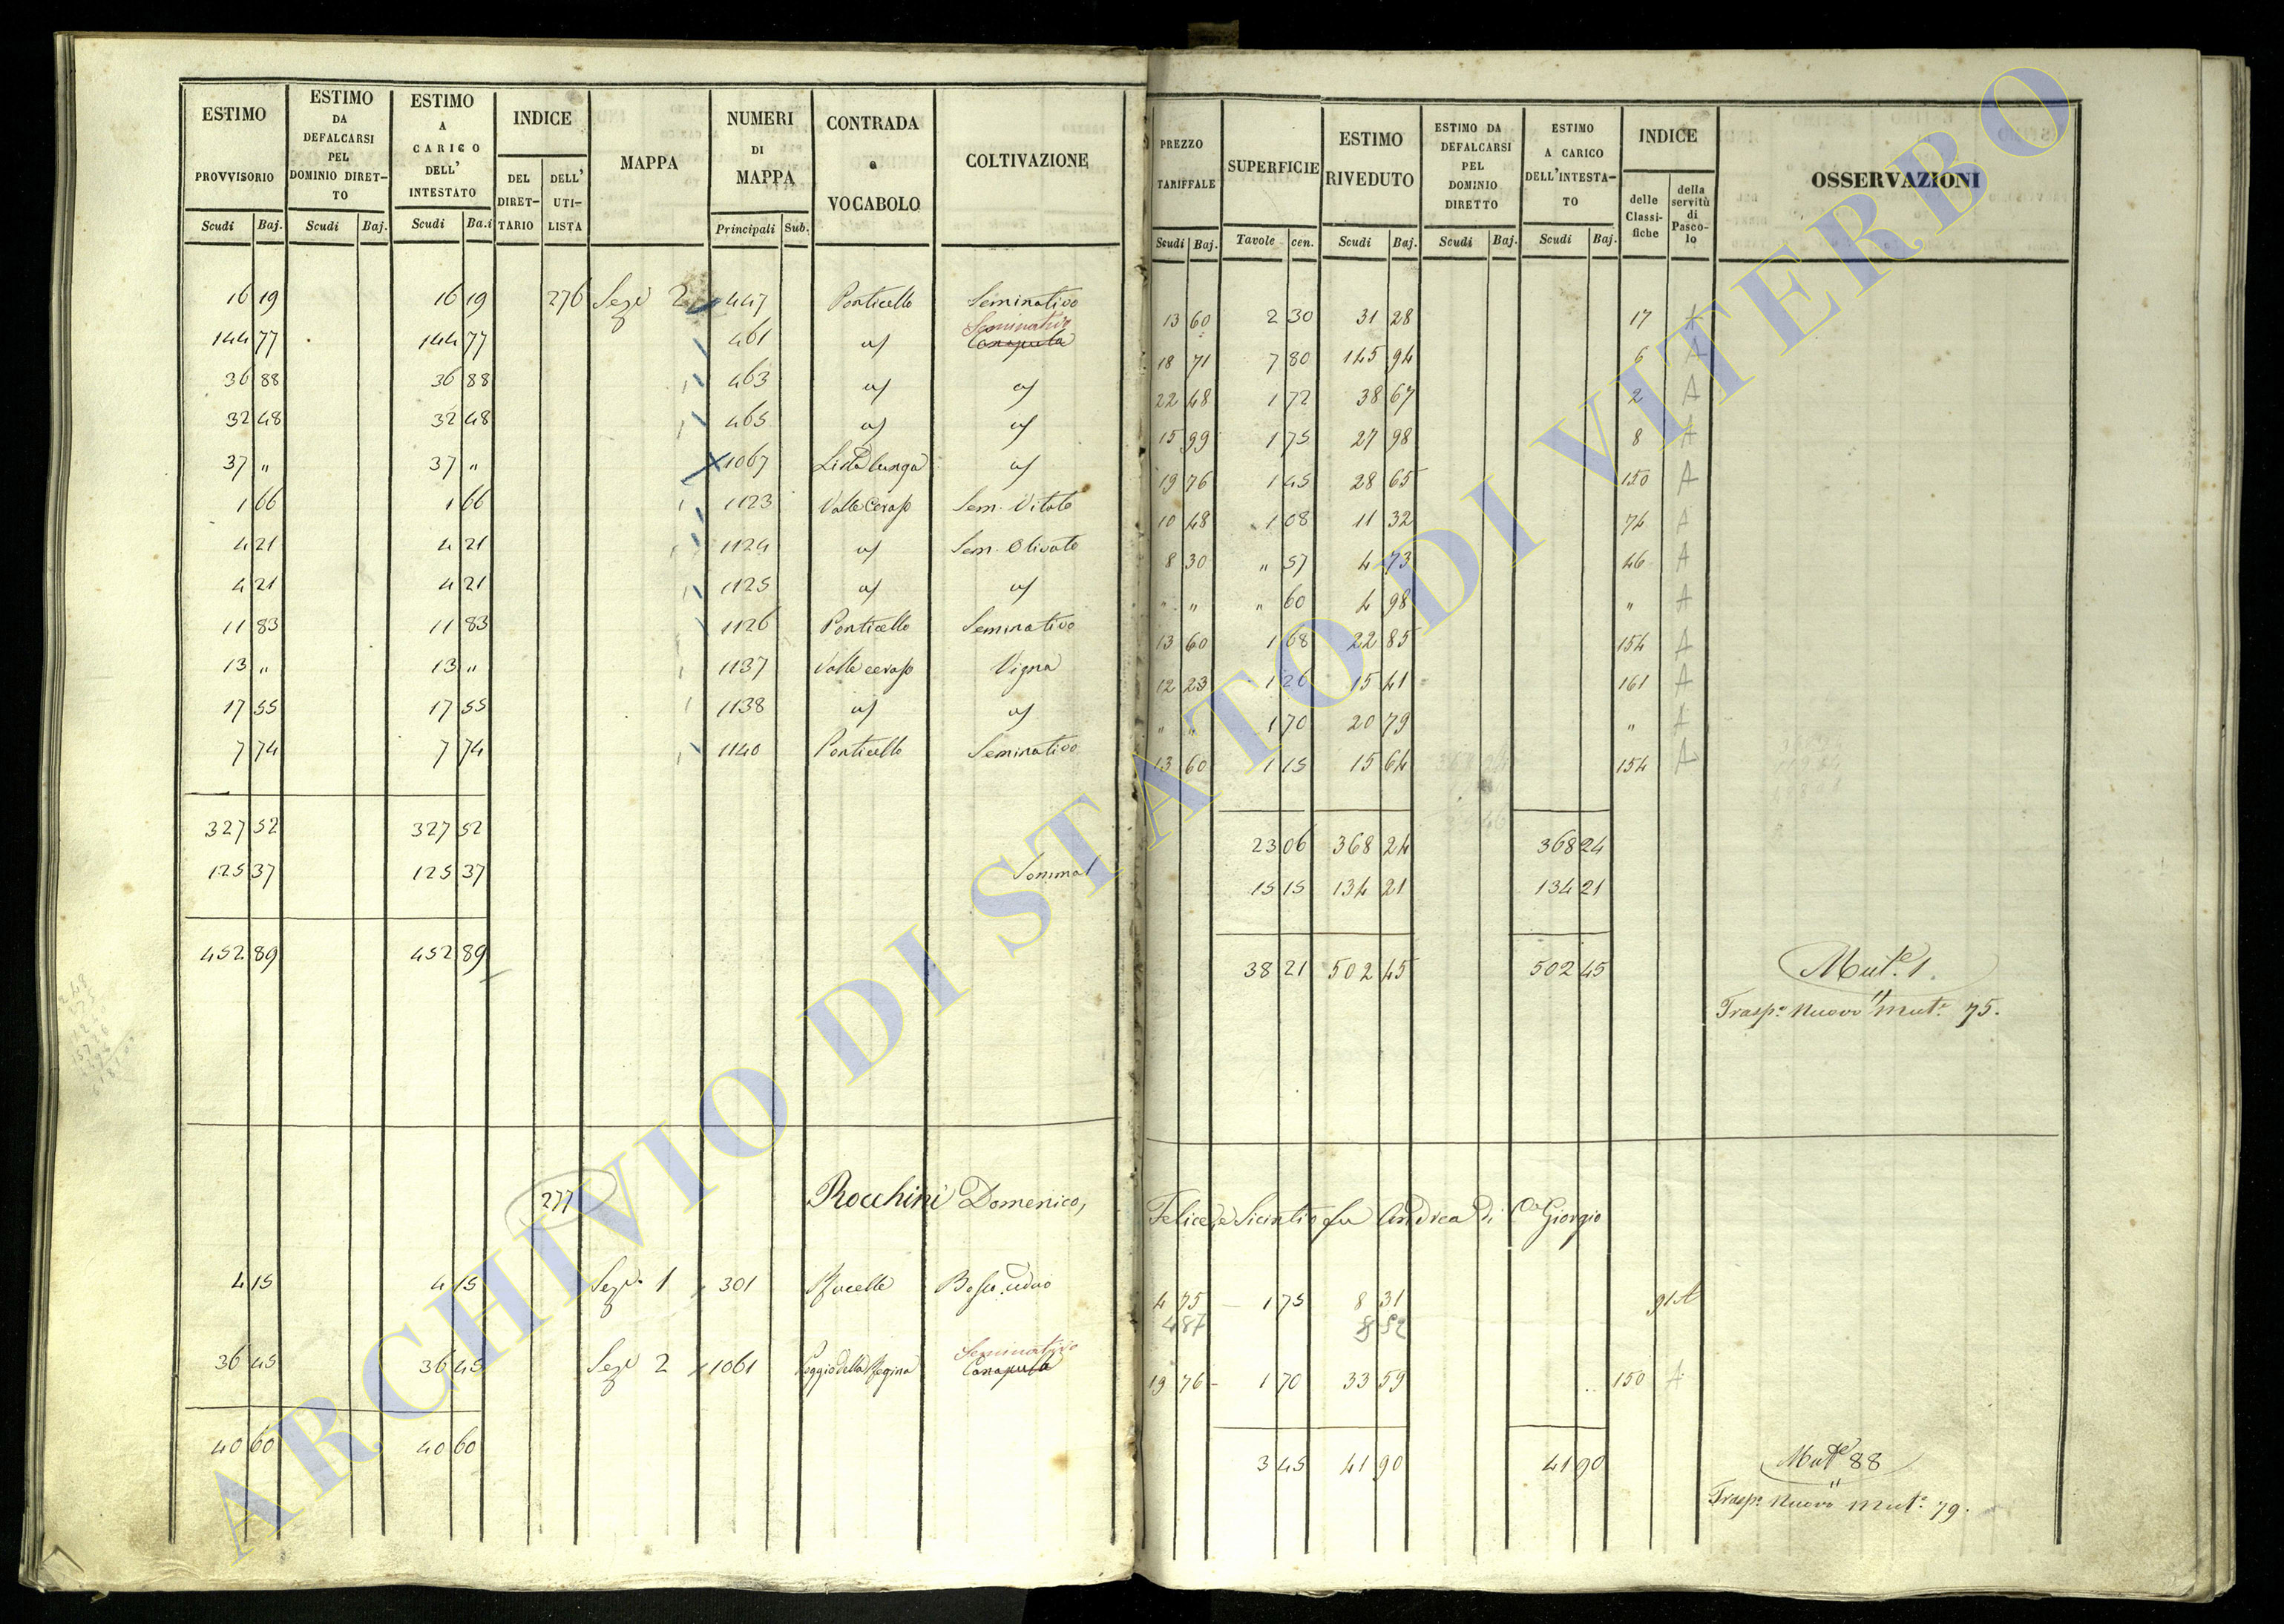 ESTIMO PROVVISORIO | ESTIMO DA DEFALCARSI PEL DOMINIO DIRET-TO | ESTIMO A CARICO DELL' INTESTATO | INDICE | MAPPA | NUMERI DI MAPPA | CONTRADA e VOCABOLO | COLTIVAZIONE | PREZZO TARIFFALE | SUPERFICIE | ESTIMO RIVEDUTO | ESTIMO DA DEFALCARSI PEL DOMINIO DIRETTO | ESTIMO A CARICO DELL'INTESTA-TO | INDICE | OSSERVAZIONI
Scudi | Baj. | Scudi | Baj. | Scudi | Ba.i | DEL DIRET-TARIO | DELL' UTI-LISTA | Principali | Sub. | Scudi | Baj. | Tavole | cen. | Scudi | Baj. | Scudi | Baj. | Scudi | Baj. | delle Classi-fiche | della servitù di Pasco-lo
16 19 | 16 19 | 276 | Sez 2 | 447 | Ponticello | Seminativo | 13 60 | 2 30 | 31 28 | 17 | A
Seminativo
144 77 | 144 77 | 461 | Canapula | 18 71 | 7 80 | 145 94 | 6 | A
36 88 | 36 88 | 463 | 22 48 | 1 72 | 38 67 | 2 | A
32 48 | 32 48 | 465 | 15 99 | 1 75 | 27 98 | 8 | A
37 " | 37 " | 1067 | Lista lunga | 19 76 | 1 45 | 28 65 | 150 | A
1 66 | 1 66 | 1123 | Valle Ceraso | Sem. Vitato | 10 48 | 1 08 | 11 32 | 74 | A
4 21 | 4 21 | 1124 | Sem. Olivato | 8 30 | " 57 | 4 73 | 46 | A
4 21 | 4 21 | 1125 | " " | " 60 | 4 98 | " | A
11 83 | 11 83 | 1126 | Ponticello | Seminativo | 13 60 | 1 68 | 22 85 | 154 | A
13 " | 13 " | 1137 | Valle ceraso | Vigna | 12 23 | 1 26 | 15 41 | 161 | A
17 55 | 17 55 | 1138 | " " | 1 70 | 20 79 | " | A
7 74 | 7 74 | 1140 | Ponticello | Seminativo | 13 60 | 1 15 | 15 64 | 154 | A
327 52 | 327 52 | 23 06 | 368 24 | 368 24
125 37 | 125 37 | Somma | 15 15 | 134 21 | 134 21
452 89 | 452 89 | 38 21 | 502 45 | 502 45 | Mut.e 1.
Trasp.o Nuovo Mut.e 75.
277 | Rocchini Domenico, Felice, e Sicintio fu Andrea di Giorgio
4 15 | 4 15 | Sez. 1 | 301 | Bosco ceduo | 4 75 | 1 75 | 8 31 | 91 A
4 87 | 8 52
Seminativo
36 45 | 36 45 | Sez 2 | 1061 | Poggio della Regina | Canapula | 19 76 | 1 70 | 33 59 | 150 | A
40 60 | 40 60 | 3 45 | 41 90 | 41 90 | Mut.e 88
Trasp.o Nuovo Mut.e 79.
ARCHIVIO DI STATO DI VITERBO